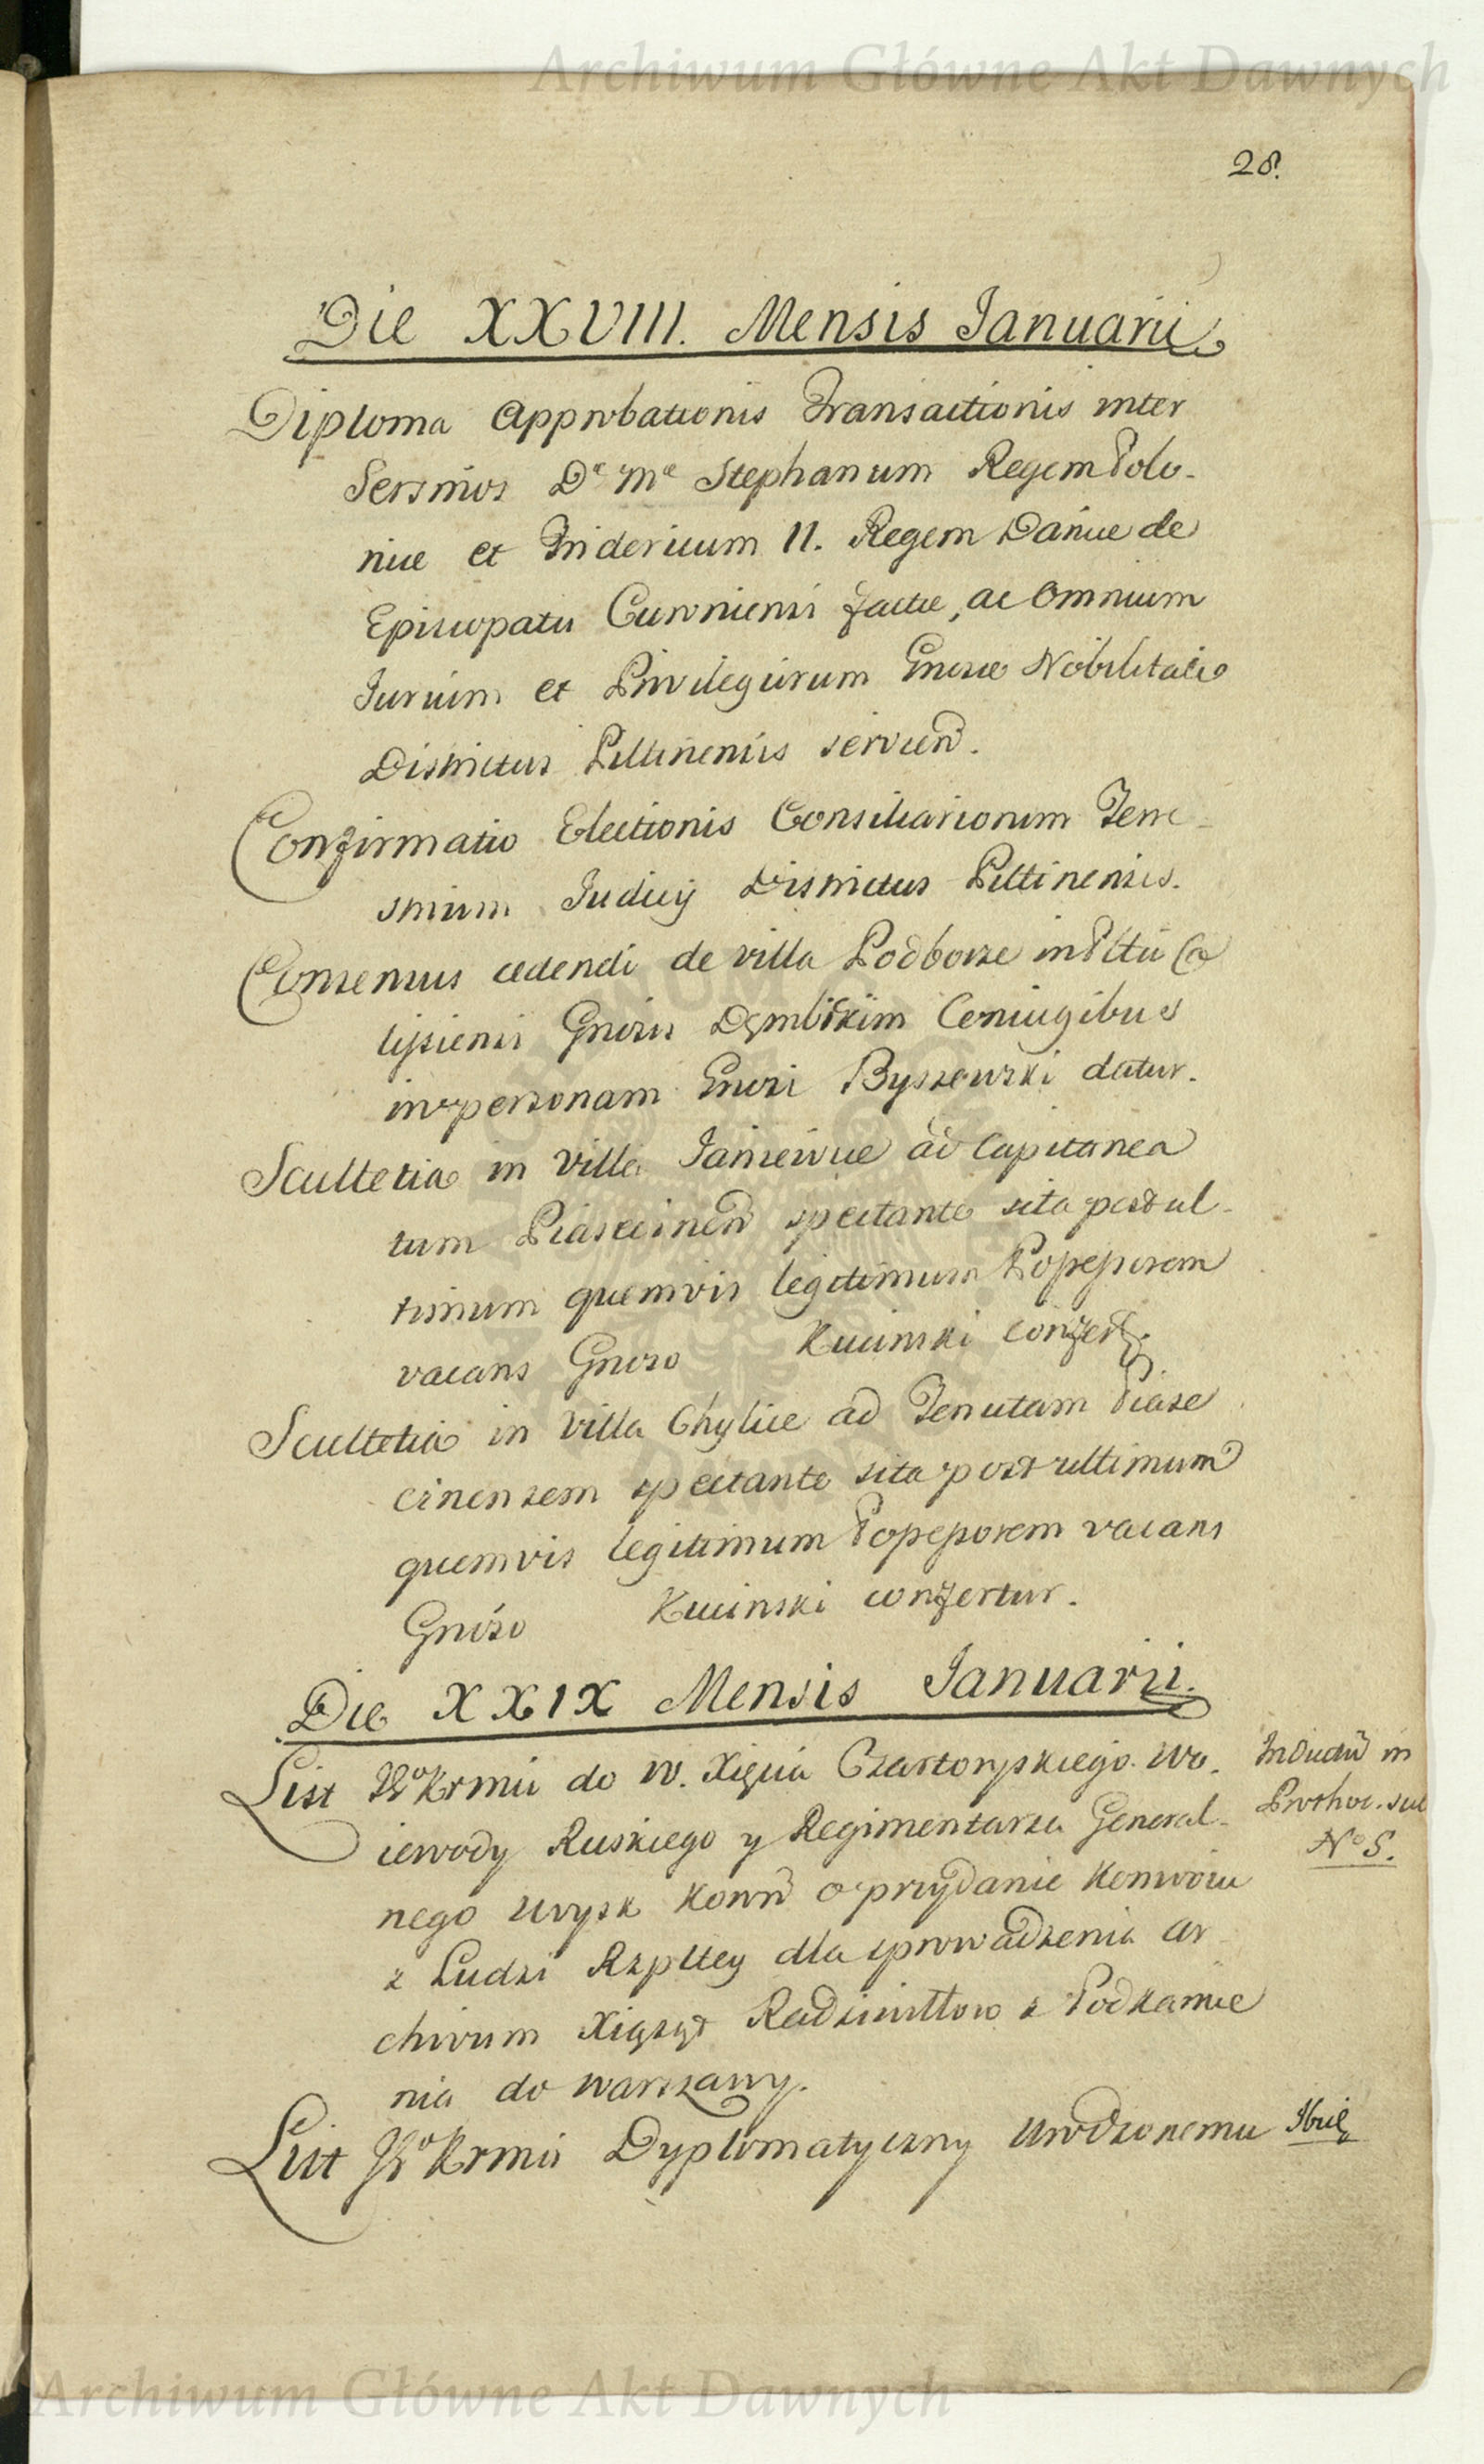 Archiwum Główne Akt Dawnych
28.
Die XXVIII. Mensis Januarii
Diploma Approbationis Transactionis inter
Sersmos Dᵉ Mᵉ Stephanum Regem Polo-
niae et Fridericum II. Regem Daniae de
Episcopatu Curoniensi factae, ac Omnium
Jurium et Privilegiorum Gnosae Nobilitatis
Districtus Piltinensis servien.
Confirmatio Electionis Consiliariorum Terre-
strium Judicij Districtus Piltinensis.
Consensus cedendi de villa Podborze in Pltu Ca
lisiensi Gnosis Dęmbskim Coniugibus
in personam Gnosi Byszewski datur.
Scultetia in Villa Janczewice ad Capitanea
tum Piasecinen spectante sita post ul-
timum quemvis legitimum Popeporem
vacans Gnoso Kucinski confert.
Scultetia in Villa Chylice ad Tenutam Piase
cinensem spectante sita post ultimum
quemvis legitimum Popeporem vacans
Gnoso Kucinski confertur.
Die XXIX Mensis Januarii.
List JKo Krmci do W. Xięcia Czartoryskiego Wo.
iewody Ruskiego y Regimentarza General-
nego Woysk Koron o przydanie Konwoiu
z Ludzi Rzpltey dla sprowadzenia Ar
chivum Xiążąt Radziwiłłow z Podkamie
nia do Warszawy.
Inductu in
Prothoc. sub
No 5.
List JKo Krmci Dyplomatyczny Urodzonemu
Ibid
Archiwum Główne Akt Dawnych